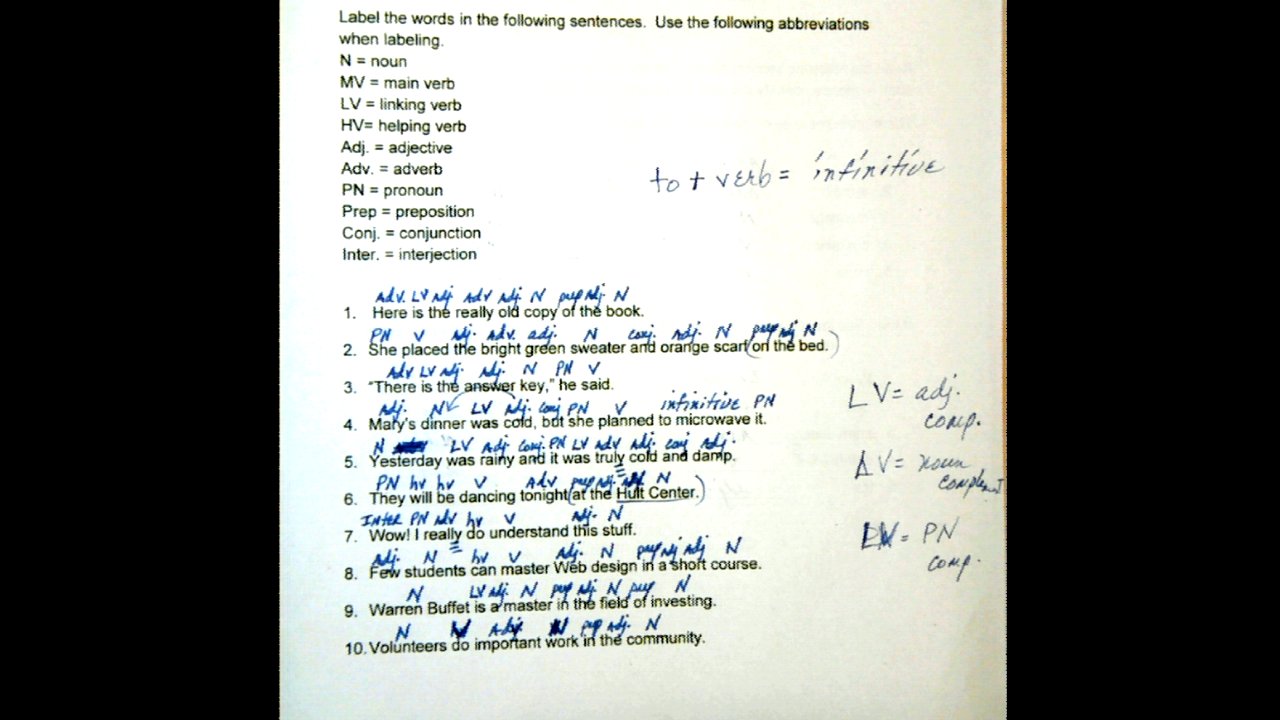 Label the words in the following sentences. Use the following abbreviations
when labeling.
N = noun
MV = main verb
LV = linking verb
HV= helping verb
Adj. = adjective
Adv. = adverb
PN = pronoun
Prep = preposition
Conj. = conjunction
Inter. = interjection
to + verb = infinitive
Adv. LV Adj Adv Adj N prep Adj. N
1. Here is the really old copy of the book.
PN V Adj. Adv. adj. N conj. Adj. N prep Adj N
2. She placed the bright green sweater and orange scarf (on the bed.)
Adv LV Adj. Adj. N PN V
3. "There is the answer key," he said.
Adj. N LV Adj. conj PN V infinitive PN
4. Mary's dinner was cold, but she planned to microwave it.
N LV Adj conj. PN LV Adv Adj. conj Adj.
5. Yesterday was rainy and it was truly cold and damp.
PN hv hv V Adv prep Adj. N
6. They will be dancing tonight (at the Hult Center.)
Inter PN Adv hv V Adj. N
7. Wow! I really do understand this stuff.
Adj. N hv V Adj. N prep Adj Adj N
8. Few students can master Web design in a short course.
N LV Adj. N prep Adj N prep N
9. Warren Buffet is a master in the field of investing.
N V Adj. N prep Adj. N
10. Volunteers do important work in the community.
LV = adj.
comp.
LV = noun
complement
LV = PN
comp.